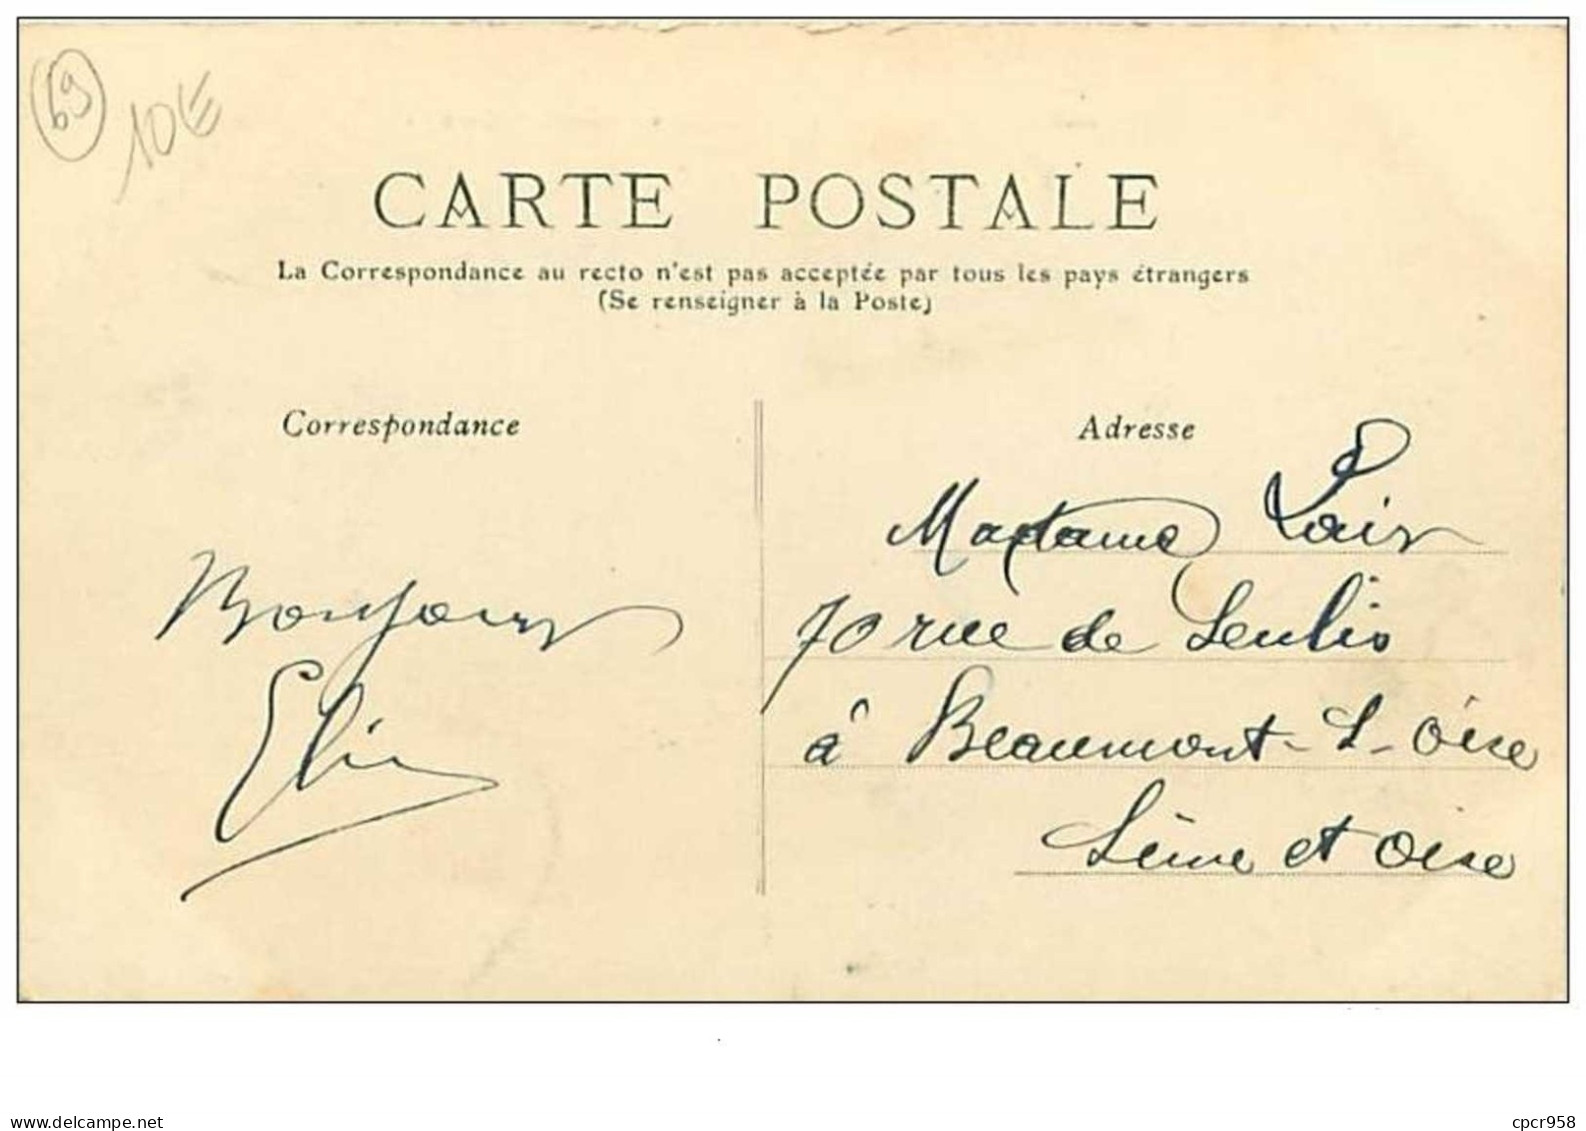 69
10€
CARTE POSTALE
La Correspondance au recto n'est pas acceptée par tous les pays étrangers
(Se renseigner à la Poste)
Correspondance
Adresse
Madame Lair
70 rue de Senlis
à Beaumont-S-Oise
Seine et Oise
Bonjour
www.delcampe.net
cpcr958